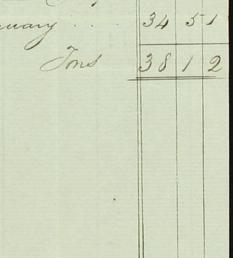 nuary .. 34 51
Tons 38 1 2